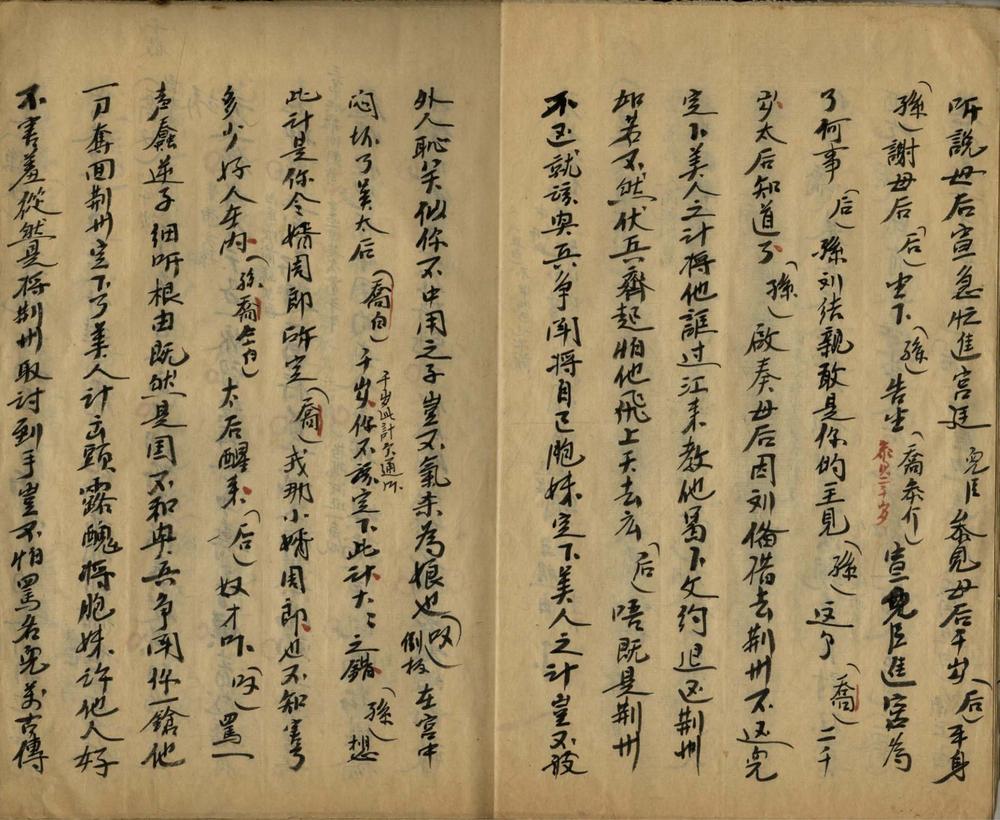 听說母后宣急忙進宮廷 児臣参見母后千岁(后)平身
(孫)謝母后(后)坐下(孫)告坐(喬参介)参見千岁 宣児臣進宮為
了何事(后)孫刘结親敢是你的主見(孫)这个(喬)二千
岁太后知道了(孫)啟奏母后因刘俻借去荆州不还児
定下美人之計将他誆过江来教他写下文约退还荆州
如若不然伏兵齊起怕他飛上天去広(后)唔既是荆州
不还就该兴兵争闹将自己胞妹定下美人之計豈不被
外人恥笑似你不中用之子豈不氣杀為娘也(叹)倒板 在宮中
闷坏了吴太后(喬白)千岁你不该定下此计大之錯(孫)想
千岁此計欠通吓
此计是你令婿周郎所定(喬)我那小婿周郎也不知害了
多少好人在内(孫喬仝白)太后醒来(后)奴才吓(叹)罵一
声蠢逆子细听根由既然是国不和兴兵争闹件一鎗他
一刀奪回荆州定下了美人计出頭露醜将胞妹许他人好
不害羞從然是将荆州取討到手豈不怕罵名児万古傳